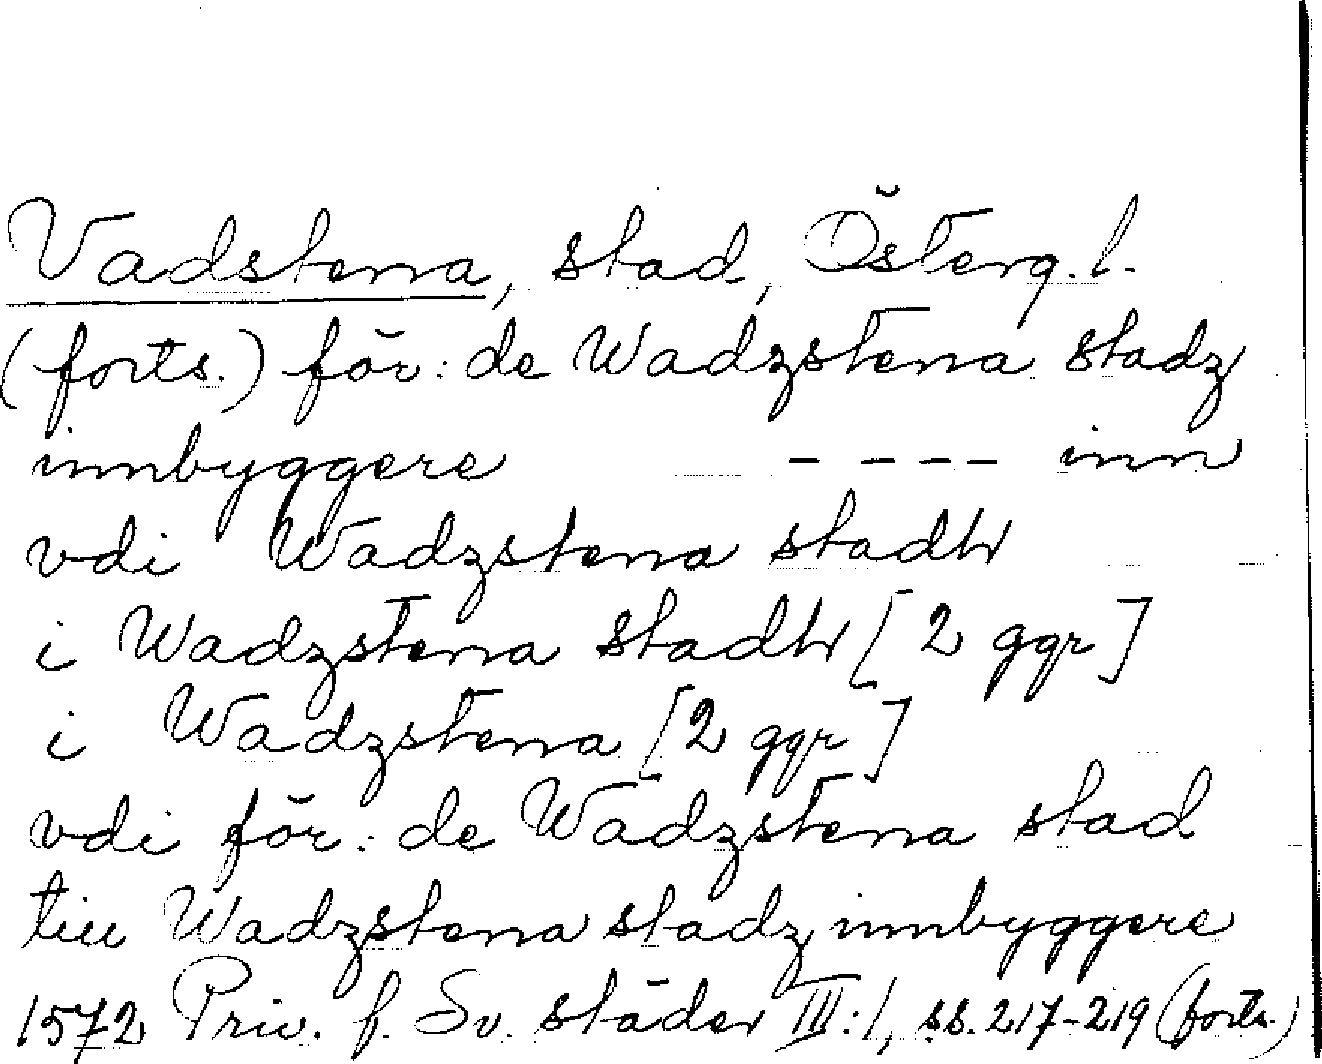 Vadstena, stad, Österg. l.
(forts.) för: de Wadzstena stadz
innbyggere - - - - inn
vdi Wadzstena stadh
i Wadzstena stadh [2 ggr]
i Wadzstena [2 ggr]
vdi för: de Wadzstena stad
till Wadzstena stadz innbyggere
1572 Priv. f. Sv. städer III:1, ss. 217-219 (forts.)